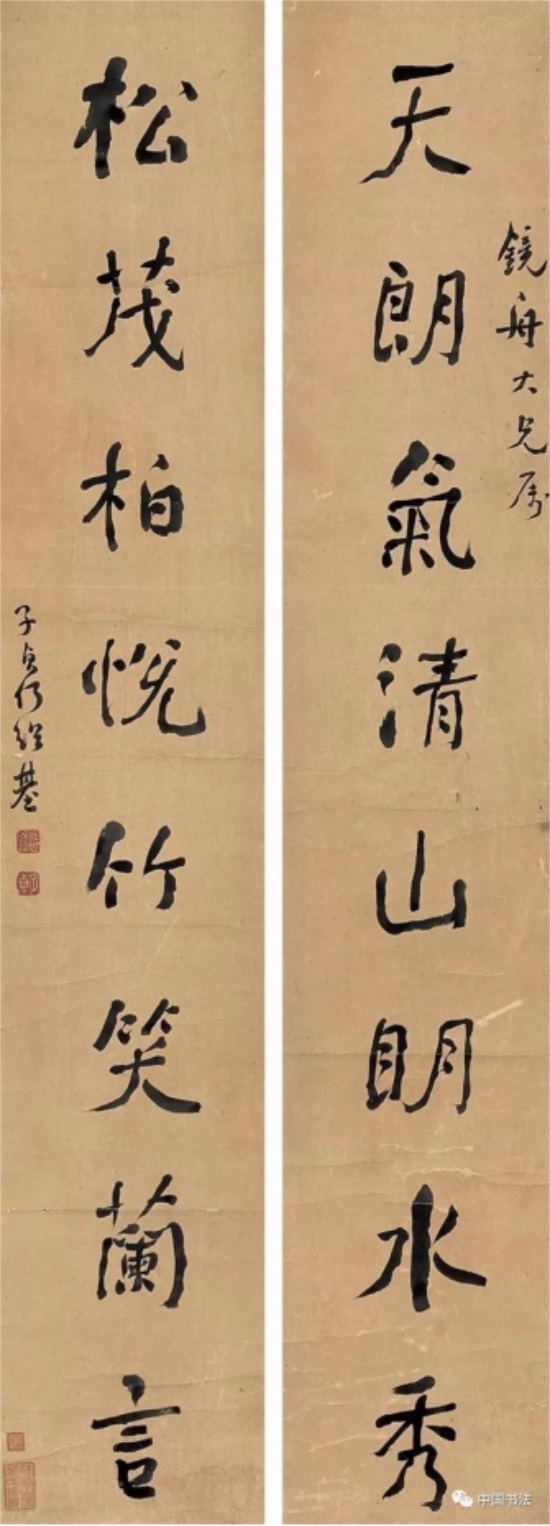 鏡舟大兄属
天朗氣清山明水秀
松茂柏悦竹笑蘭言
子貞何紹基
中国书法